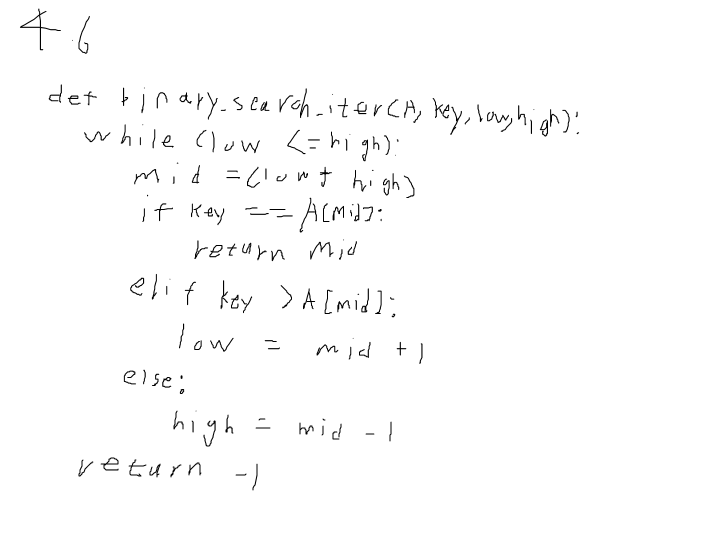 4.6
def binary_search_iter(A, key, low, high):
while (low <= high):
mid = (low + high)
if key == A[mid]:
return mid
elif key > A[mid]:
low = mid + 1
else:
high = mid - 1
return -1